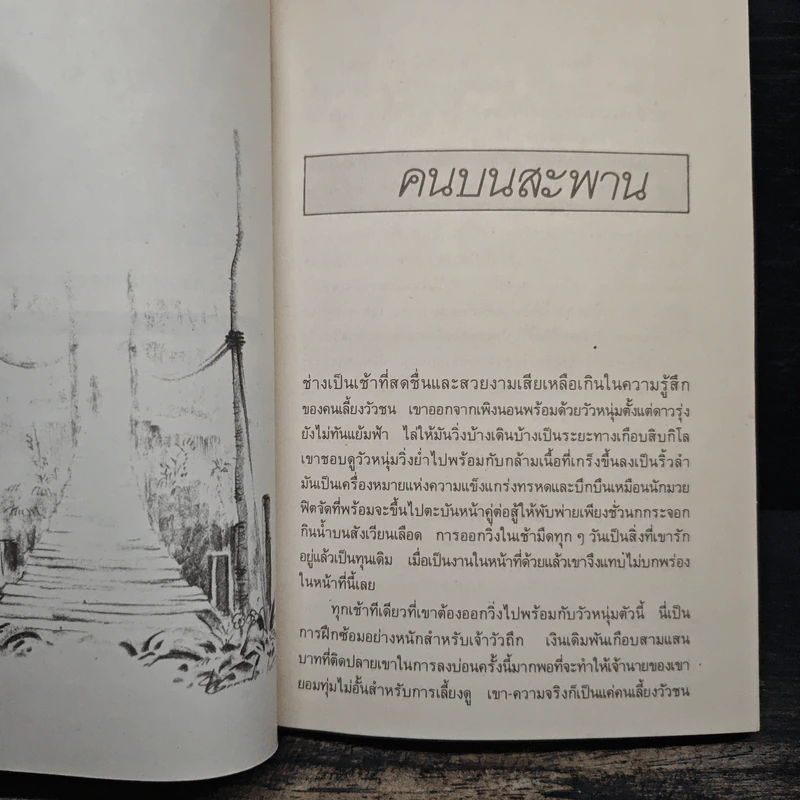 คนบนสะพาน
ช่างเป็นเช้าที่สดชื่นและสวยงามเสียเหลือเกินในความรู้สึก
ของคนเลี้ยงวัวชน เขาออกจากเพิงนอนพร้อมด้วยวัวหนุ่มตั้งแต่ดาวรุ่ง
ยังไม่ทันแย้มฟ้า ไล่ให้มันวิ่งบ้างเดินบ้างเป็นระยะทางเกือบสิบกิโล
เขาชอบดูวัวหนุ่มวิ่งย่ำไปพร้อมกับกล้ามเนื้อที่เกร็งขึ้นลงเป็นริ้วลำ
มันเป็นเครื่องหมายแห่งความแข็งแกร่งทรหดและบึกบึนเหมือนนักมวย
ฟิตจัดที่พร้อมจะขึ้นไปตะบันหน้าคู่ต่อสู้ให้พับพ่ายเพียงชั่วนกกระจอก
กินน้ำบนสังเวียนเลือด การออกวิ่งในเช้ามืดทุก ๆ วันเป็นสิ่งที่เขารัก
อยู่แล้วเป็นทุนเดิม เมื่อเป็นงานในหน้าที่ด้วยแล้วเขาจึงแทบไม่บกพร่อง
ในหน้าที่นี้เลย
ทุกเช้าทีเดียวที่เขาต้องออกวิ่งไปพร้อมกับวัวหนุ่มตัวนี้ นี่เป็น
การฝึกซ้อมอย่างหนักสำหรับเจ้าวัวถึก เงินเดิมพันเกือบสามแสน
บาทที่ติดปลายเขาในการลงบ่อนครั้งนี้มากพอที่จะทำให้เจ้านายของเขา
ยอมทุ่มไม่อั้นสำหรับการเลี้ยงดู เขา-ความจริงก็เป็นแค่คนเลี้ยงวัวชน